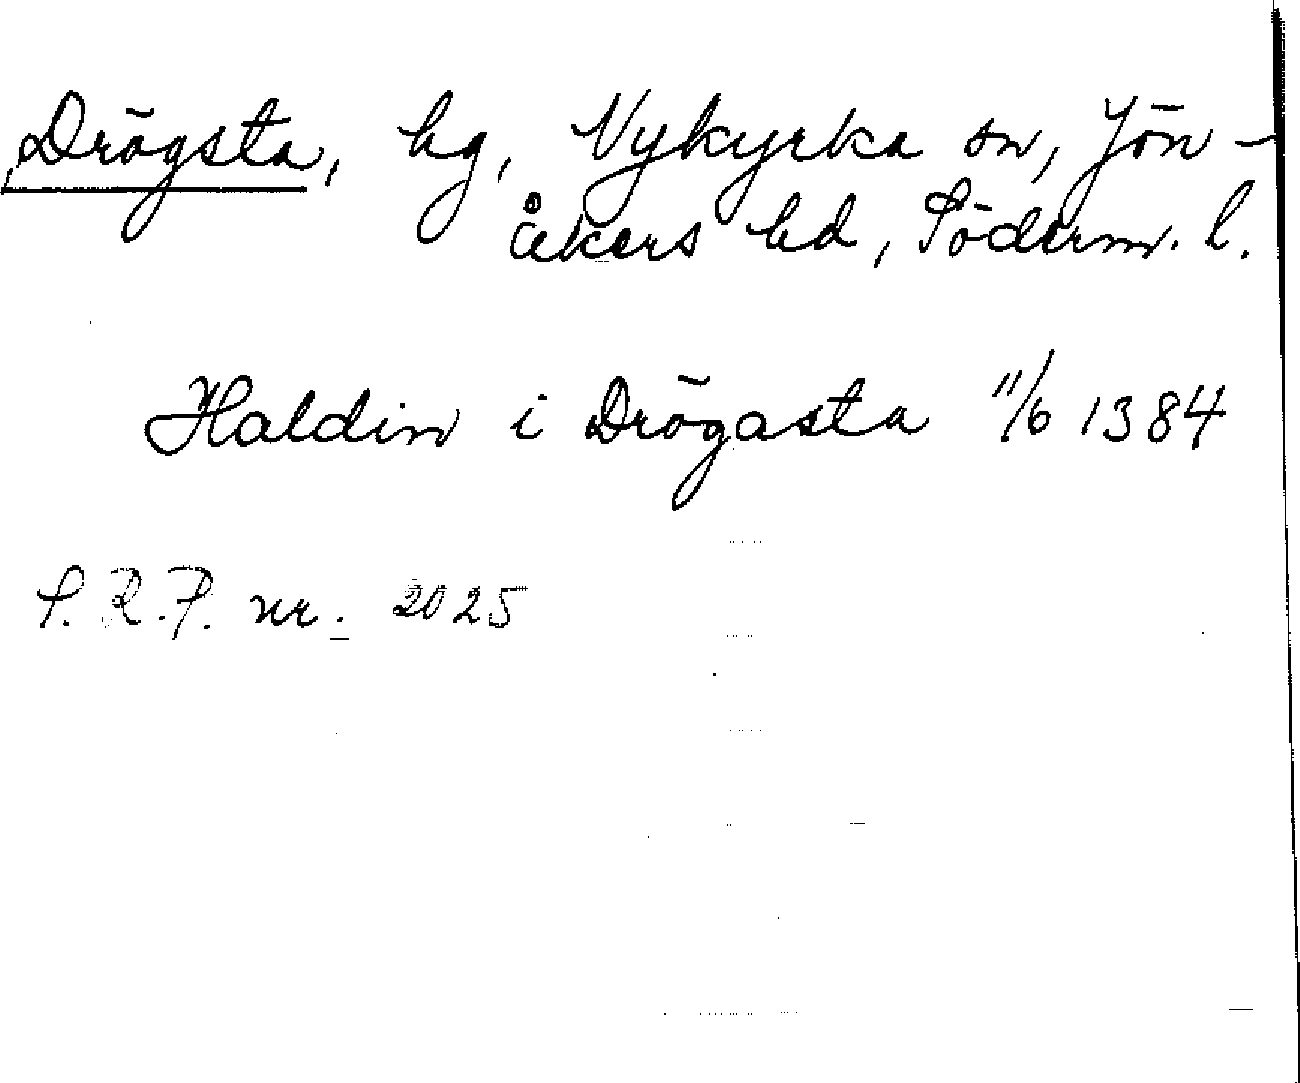 Drögsta, hg, Nykyrka sn, Jön-
åkers hd, Söderm. l.
Haldin i Drögasta 11/6 1384
S.R.P. nr. 2025